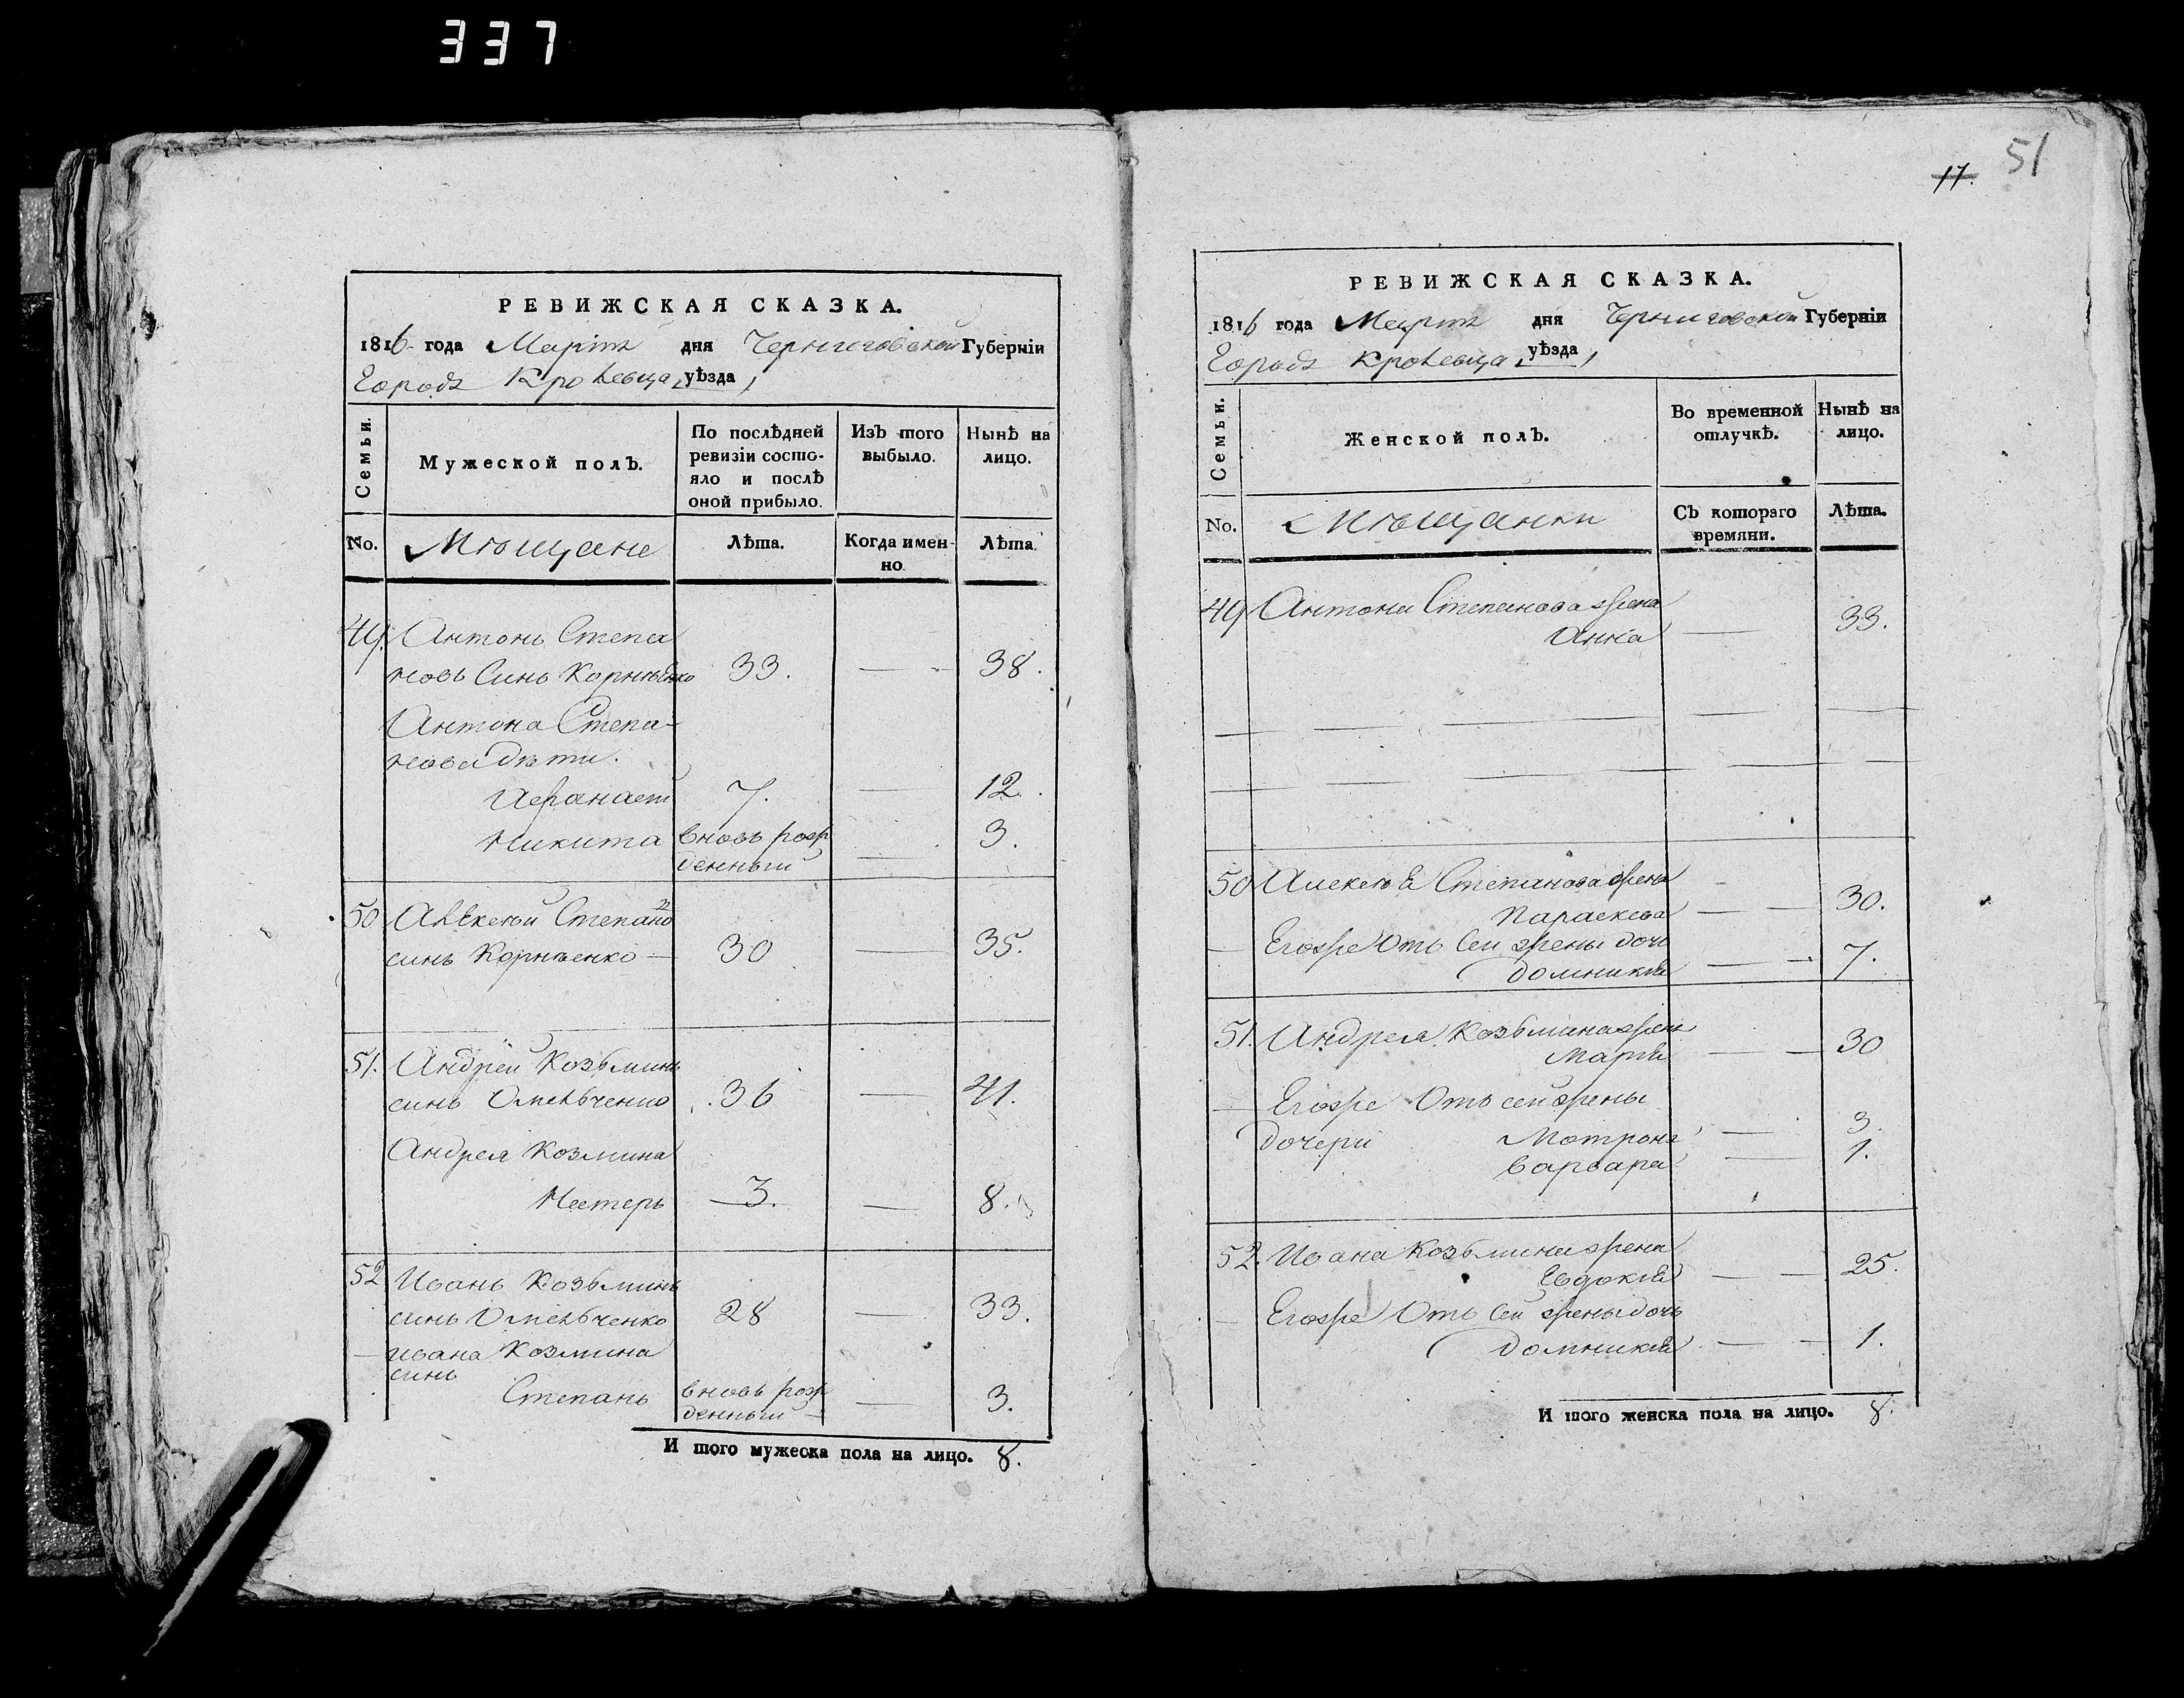 337
РЕВИЖСКАЯ СКАЗКА.
1816 года Мартъ дня Черниговской Губерніи
Городъ Кролевца, уѣзда,
Семьи.
Мужеской полъ.
По послѣдней ревизіи состо-
яло и послѣ оной прибыло.
Изъ того выбыло.
Нынѣ на лицо.
No.
Мѣщане
Лѣта.
Когда имен-
но.
Лѣта.
49. Антонъ Степа
новъ Синъ Корнѣенко 33. — 38.
Антона Степа-
нова дѣти.
Афанаси 7. — 12.
Никита вновь рож
денный — 3.
50 Алексѣй Степано
синъ Корнѣенко — 30 — 35.
51. Андрей Козьминъ
синъ Омельченко 36 — 41.
Андрея Козмина
Нестеръ 3. — 8.
52 Иванъ Козьминъ
синъ Омельченко 28 — 33.
— Ивана Козмина
синъ
Степанъ вновь рож
денный — — 3.
И того мужеска пола на лицо. 8.
17. 51
РЕВИЖСКАЯ СКАЗКА.
1816 года Мартъ дня Черниговской Губерніи
Городъ Кролевца, уѣзда,
Семьи.
Женской полъ.
Во временной отлучкѣ.
Нынѣ на лицо.
No.
Мѣщанки
Съ котораго времяни.
Лѣта.
49 Антона Степанова жена
Анна — 33.
50 Алексѣя Степанова жена
Параскева — — 30.
— Егоже Отъ Сей жены дочь
Домникія — — 7.
51. Андрея Козьмина жена
Марія — — 30
— Егоже Отъ сей жены
дочери Мотрона — 3.
Варвара — 1.
52. Ивана Козьмина жена
Евдокія — — 25.
— Егоже Отъ Сей жены дочь
Домникія — — 1.
И того женска пола на лицо. 8.